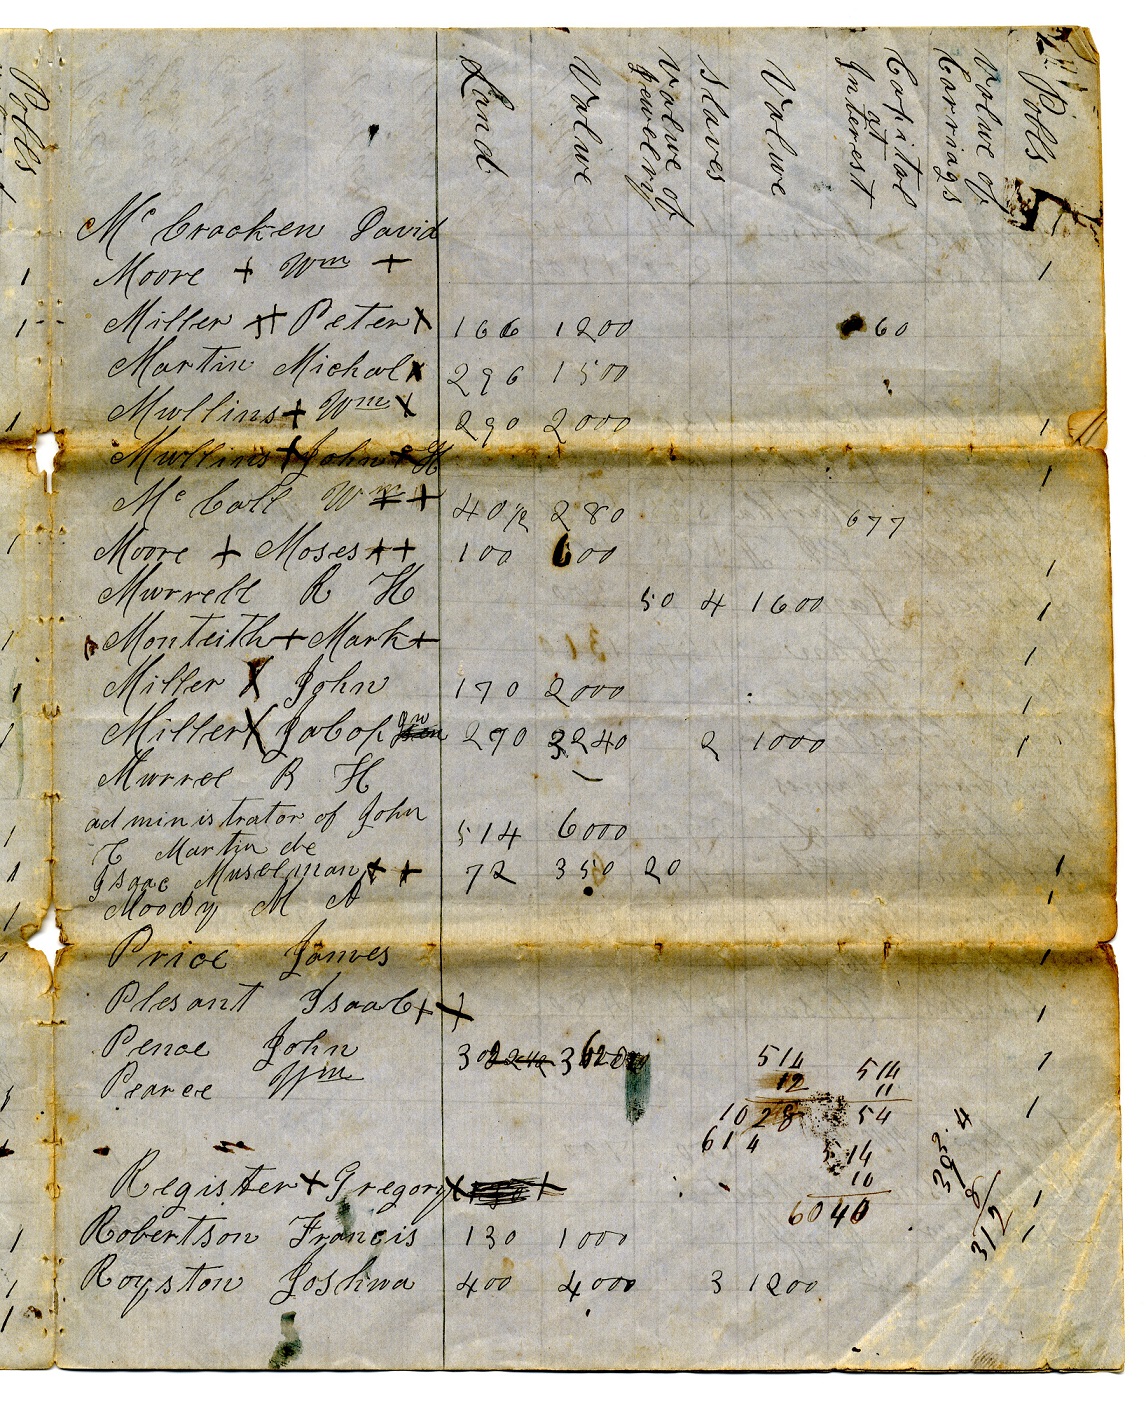 Polls
Land Value Value of Jewelry Slaves Value Capital at Interest Value of Carriags Polls
Mc Cracken David 1
Moore + Wm + 1
1 Miller ++ Peter X 166 1200 60
1 Martin Michal X 296 1500
1 Mullins + Wm X 290 2000 1
Mullins + John + H 1
Mc Call Wm + + 40 1/2 280 677
1 Moore + Moses ++ 100 600 1
Murrell R H 50 4 1600 1
1 Monteith + Mark + 1
1 Miller X John 170 2000 1
1 Miller X Jacob Jn 290 3240 2 1000 1
Murrel R H
1 administrator of John
T Martin de 514 6000
1 Isaac Muselman + + 72 350 20 1
1 Moody M A 1
1 Price James 1
Plesant Isaac + + 1
Pence John 302 3620 1
Pearce Wm 1
514
12
1028
614
514
11
54
514
10
6040
302.4
312
Register + Gregory X + 1
1 Robertson Francis 130 1000 1
1 Royston Joshua 400 4000 3 1200
1